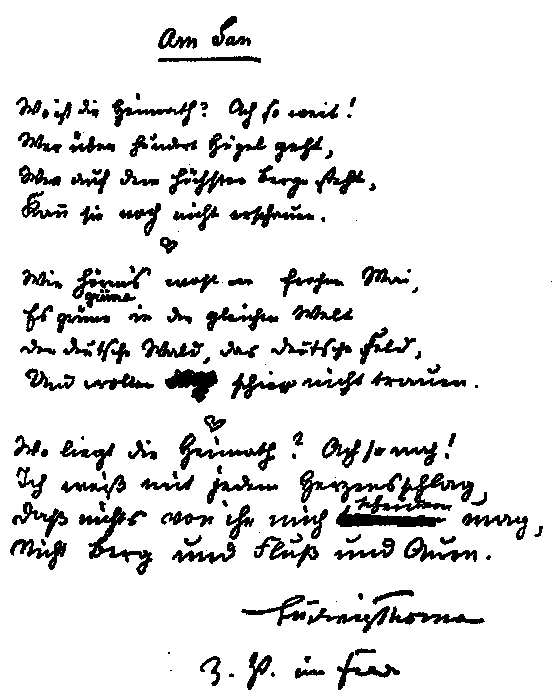 Am San
Wo ist die Heimath? Ach so weit!
Wer über hundert Hügel geht,
Wer auf dem höchsten Berge steht,
Kan̄ sie noch nicht erschauen.
Wir hören's wohl im frohen Mai,
grüne
Es grüne in der gleichen Welt
Der deutsche Wald, das deutsche Feld,
Und wollen schier nicht trauen.
Wo liegt die Heimath? Ach so nah!
Ich weiß mit jedem Herzensschlag,
Daß nichts von ihr mich scheiden mag,
Nicht Berg und Fluß und Auen.
Ludwig Thoma
Z. Zt. im Feld